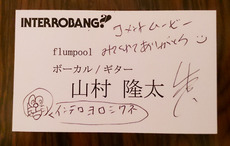 INTERROBANG?!
コメントムービー
flumpool みてくれてありがとう
ボーカル／ギター
山村 隆太
インテロヨロシクネ